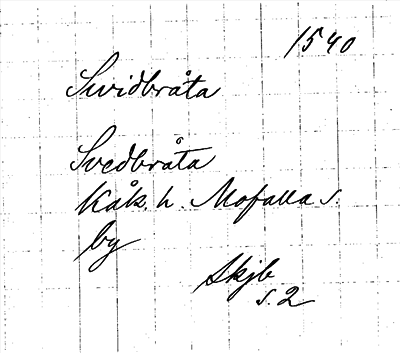 1540
Svidbråta
Svedbråta
Kåk. h. Mofalla s.
by
Skjb
s. 2